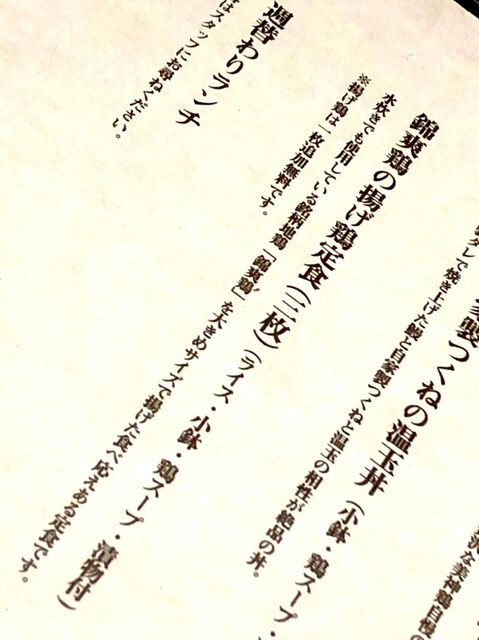 沢な美神鶏自慢の
製つくねの温玉丼（小鉢・鶏スープ・
タレで焼き上げた鰻と自家製つくねと温玉の相性が絶品の丼。
錦爽鶏の揚げ鶏定食（三枚）（ライス・小鉢・鶏スープ・漬物付）
水炊きでも使用している銘柄地鶏「錦爽鶏」を大きめサイズで揚げた食べ応えある定食です。
※揚げ鶏は一枚追加無料です。
週替わりランチ
はスタッフにお尋ねください。